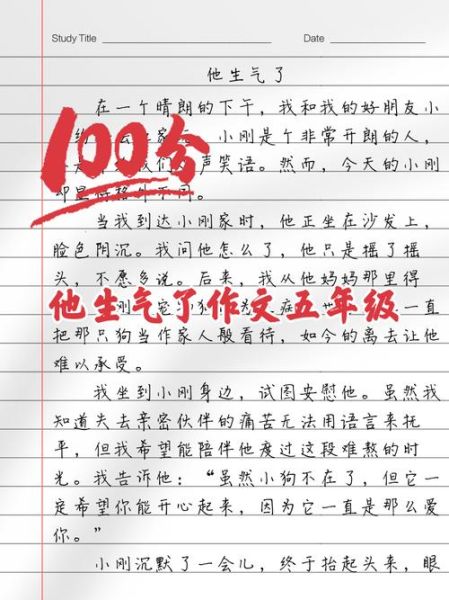 Study Title
Date
他生气了
在一个晴朗的下午，我和我的好朋友小
小刚是个非常开朗的人，
声笑语。然而，今天的小刚
却显得格外不同。
100分
当我到达小刚家时，他正坐在沙发上，
脸色阴沉。我问他怎么了，他只是摇了摇
头，不愿多说。后来，我从他妈妈那里得
一直
他生气了作文五年级
把那只狗当作家人般看待，如今的离去让他
难以承受。
我坐到小刚身边，试图安慰他。虽然我
知道失去亲密伙伴的痛苦无法用语言来抚
平，但我希望能陪伴他度过这段难熬的时
光。我告诉他：“虽然小狗不在了，但它一
定希望你能开心起来，因为它一直是那么爱
你。”
小刚沉默了一会儿，终于抬起头来，眼